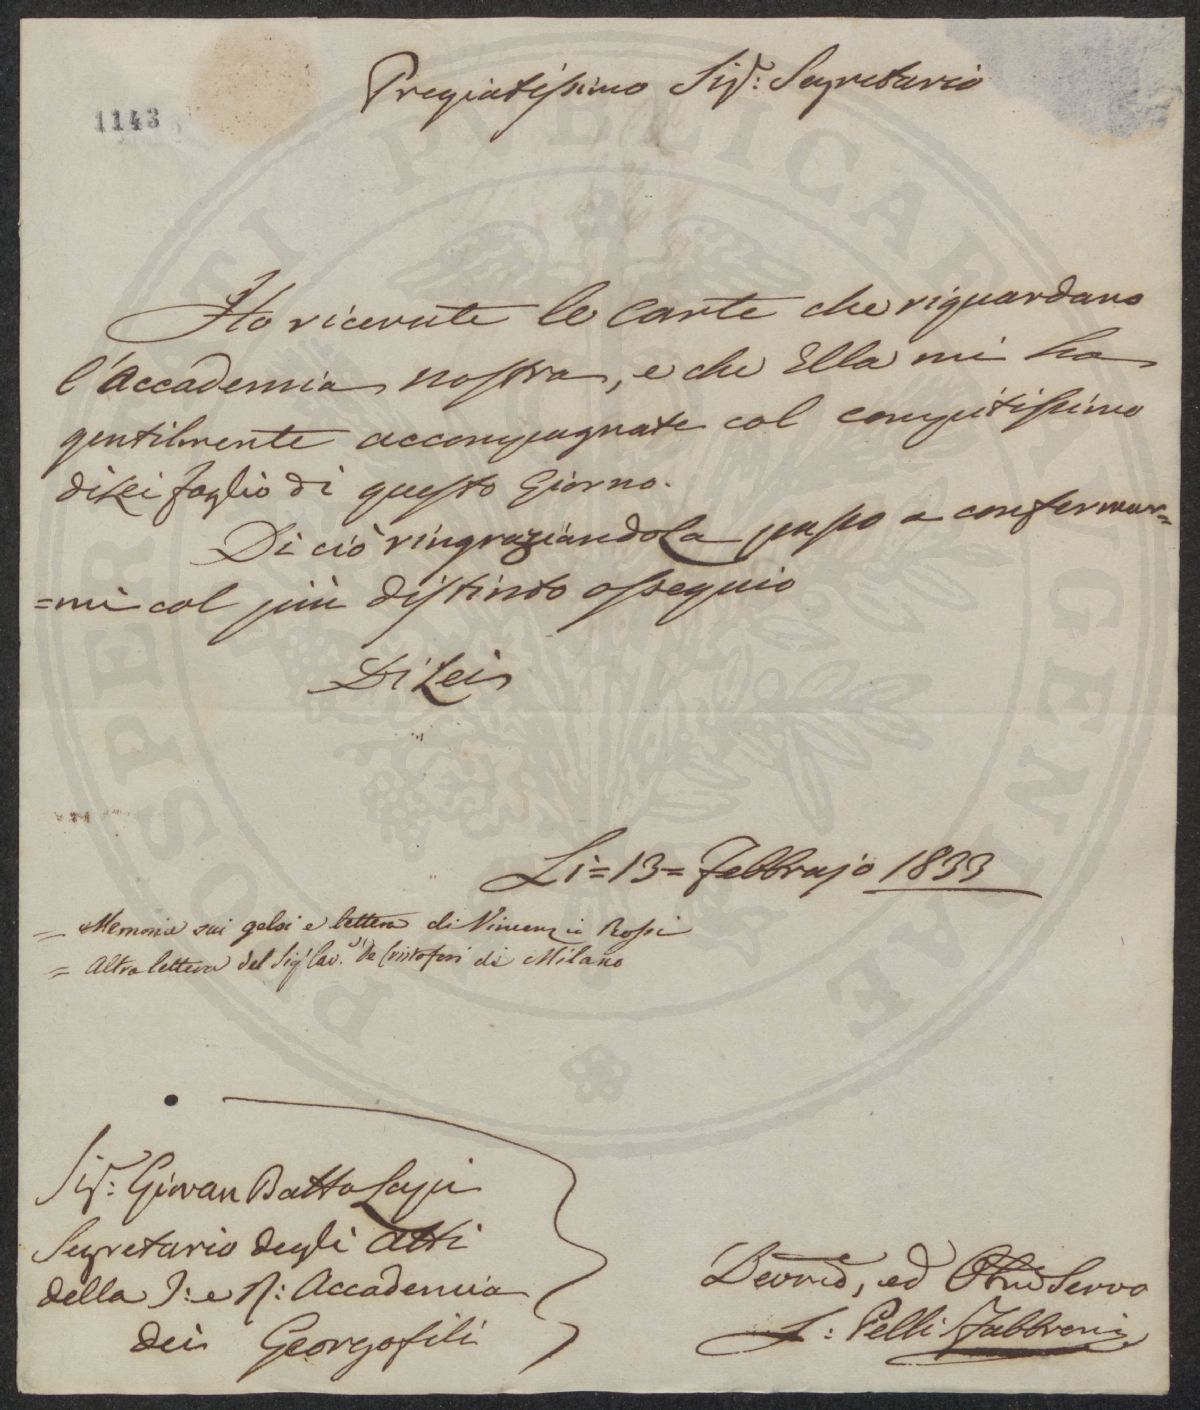 1143
Pregiatissimo Sigr: Segretario
Ho ricevute le Carte che riguardano
l'Accademia nostra, e che Ella mi ha
gentilmente accompagnate col compitissimo
di Lei foglio di questo Giorno.
Di ciò ringraziandola passo a confermar=
=mi col più distinto ossequio
Di Lei
Li = 13 = Febbrajo 1833
= Memoria sui gelsi e lettera di Vincenzio Rossi
= Altra lettera del Sig Cav. de Cristofori di Milano
Sigr: Giovan Batta Lapi
Segretario degli Atti
della I: e R: Accademia
dei Georgofili
Devmo, ed Obbmo Servo
L: Pelli Fabbroni
PROSPERITATI PVBLICAE AVGENDAE